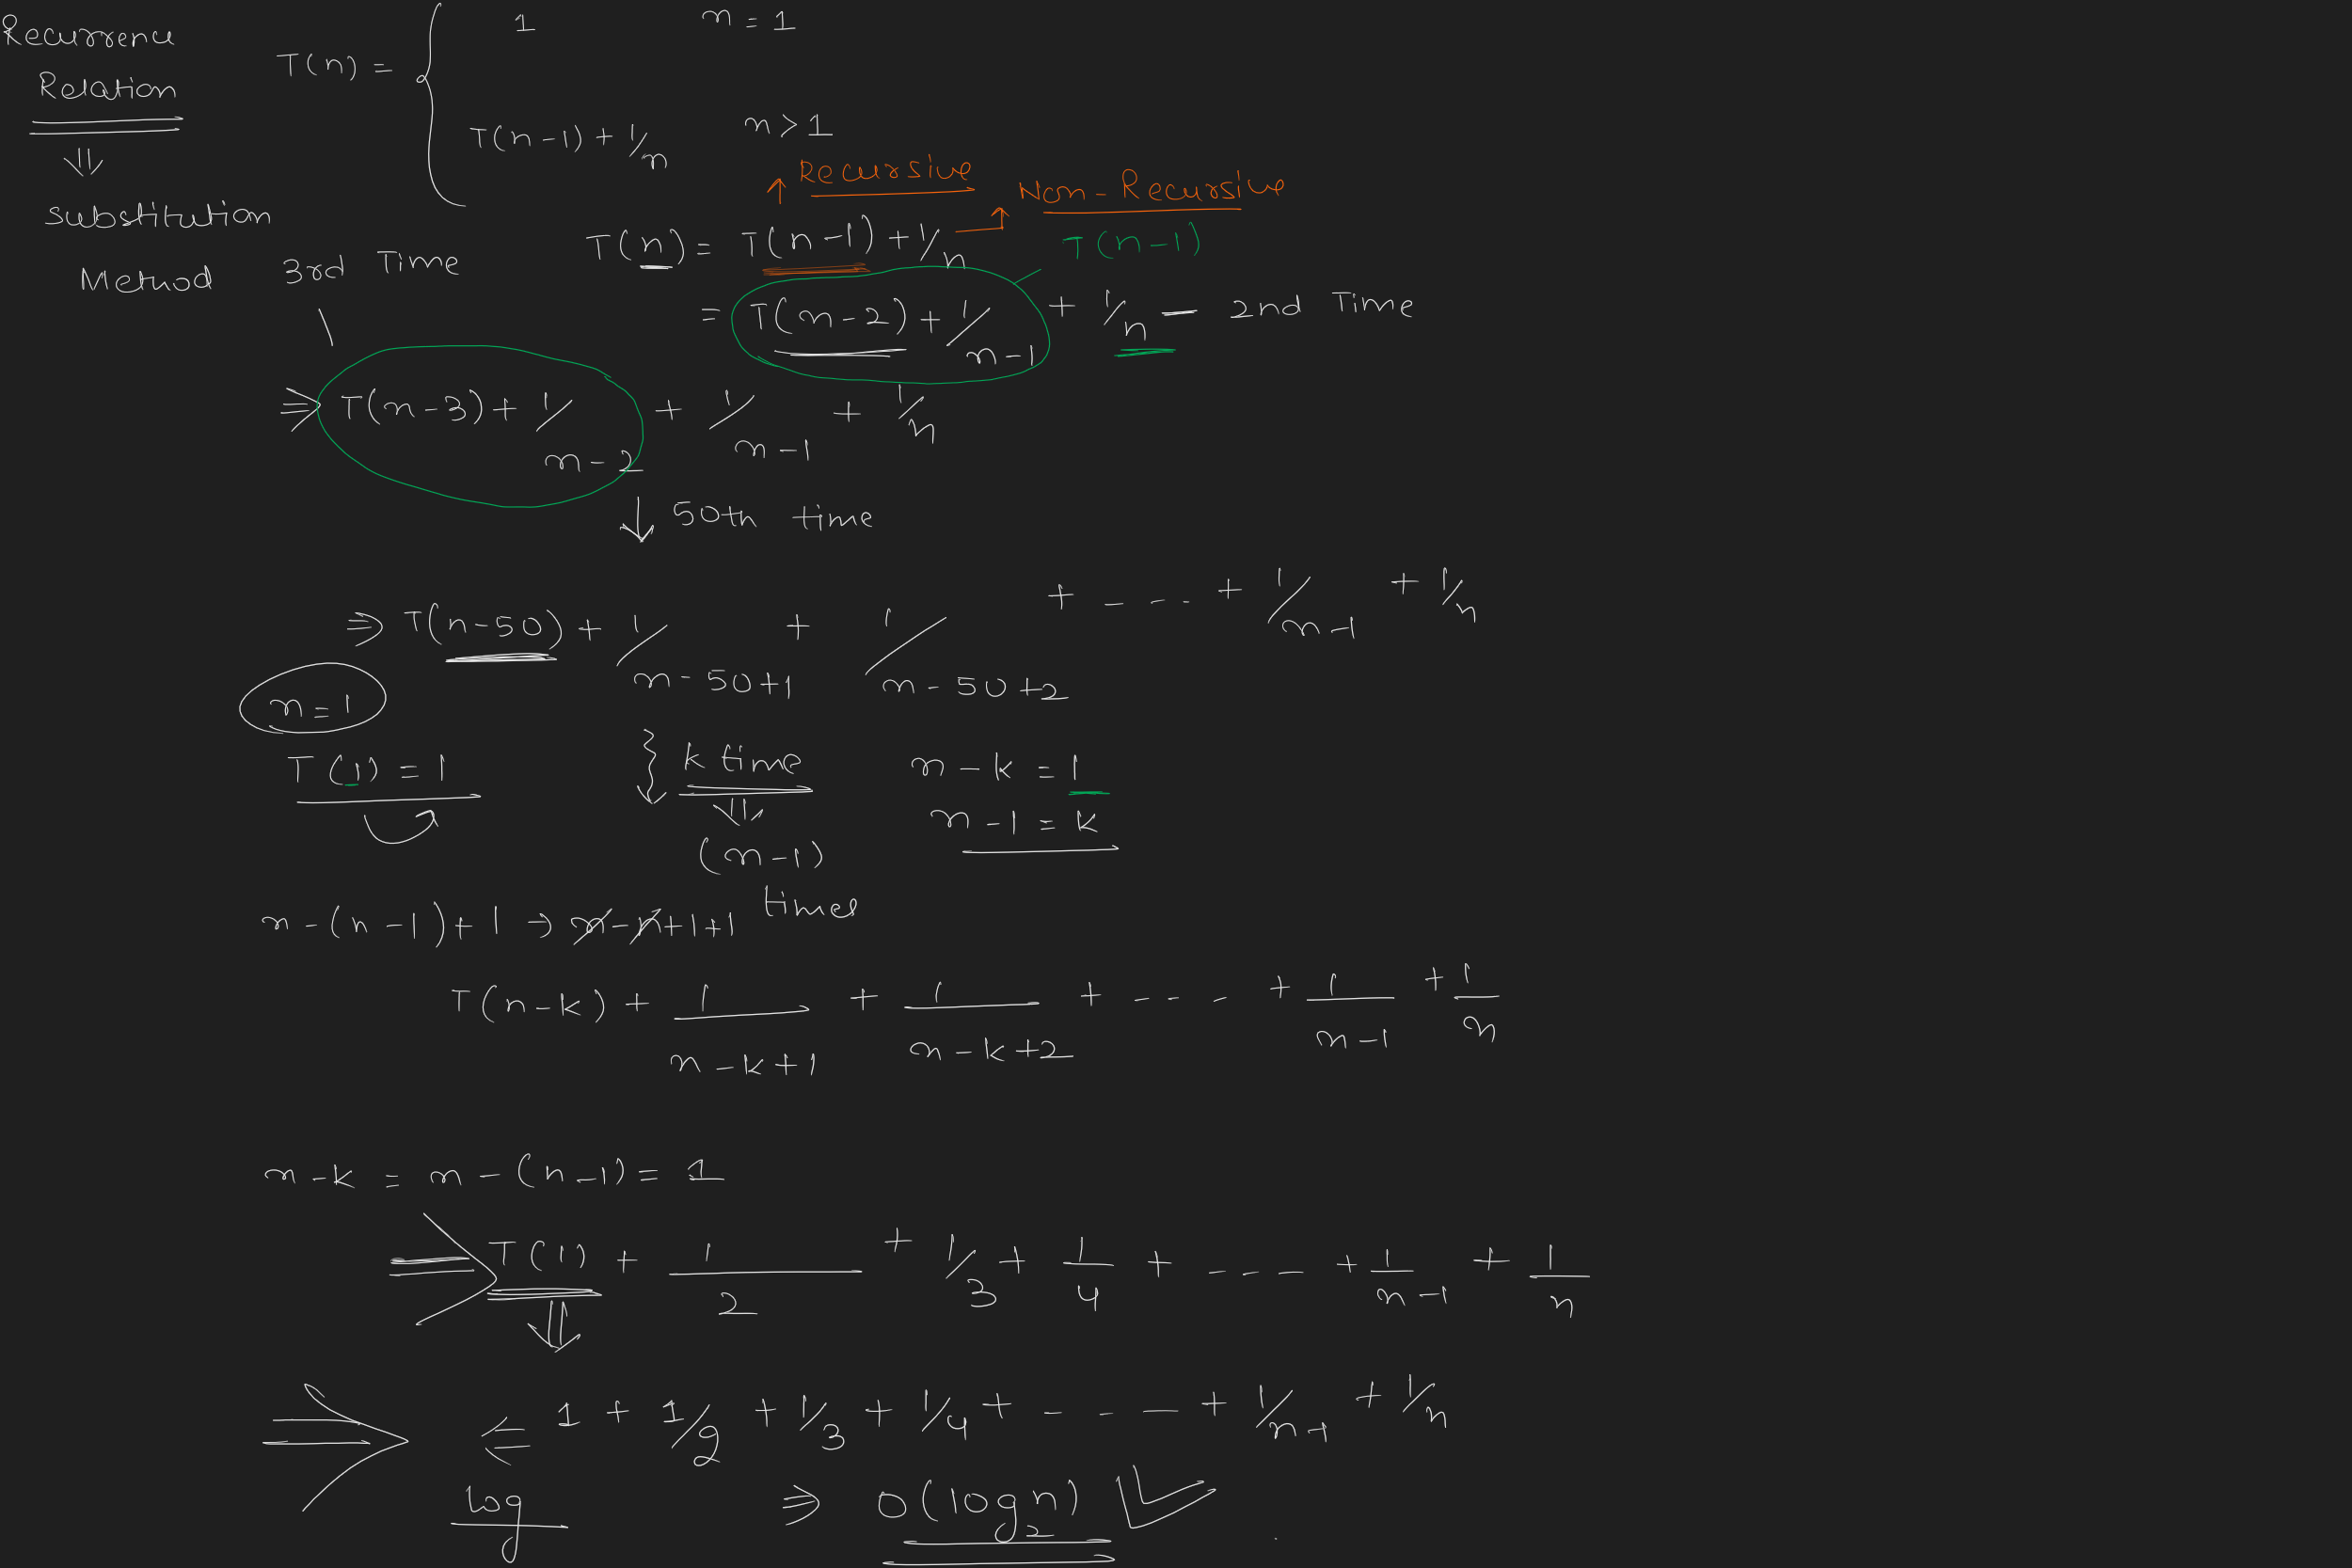 Recurrence
Relation
⇓
substitution
Method
T(n) = { 1    n = 1
T(n-1) + 1/n    n > 1
↑ Recursive
Non-Recursive
T(n) = T(n-1) + 1/n →
T(n-1)
= T(n-2) + 1/n-1 + 1/n — 2nd Time
3rd Time
⇒ T(n-3) + 1/n-2 + 1/n-1 + 1/n
↓ 50th time
⇒ T(n-50) + 1/n-50+1 + 1/n-50+2 + - - - - + 1/n-1 + 1/n
n = 1
T(1) = 1
k time
⇓
(n-1)
times
n - k = 1
n - 1 = k
n - (n-1) + 1 → n - n + 1 + 1
T(n-k) + 1/n-k+1 + 1/n-k+2 + - - - + 1/n-1 + 1/n
n - k = n - (n-1) = 1
⇒ T(1) + 1/2 + 1/3 + 1/4 + - - - + 1/n-1 + 1/n
⇓
⇒ ⇐ 1 + 1/2 + 1/3 + 1/4 + - - - + 1/n-1 + 1/n
log
⇒ O(log₂n)